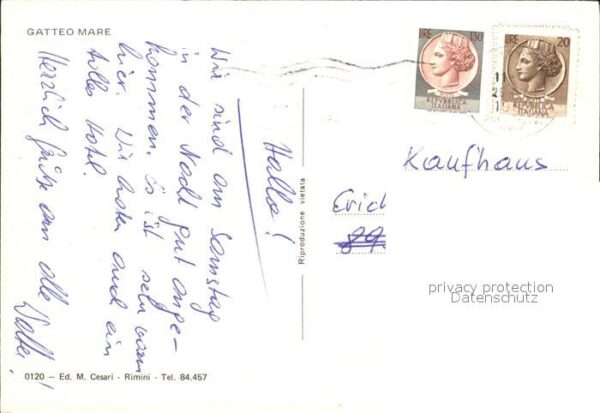 GATTEO MARE
Hallo!
Wir sind am Samstag
in der Nacht gut ange-
kommen. Es ist sehr warm
hier. Wir haben auch ein
tolles Hotel.
Herzlich grüßt euch alle Walter!
0120 - Ed. M. Cesari - Rimini - Tel. 84.457
Riproduzione vietata
LIRE 130
REPUBBLICA
ITALIANA
LIRE 20
REPUBBLICA
ITALIANA
Kaufhaus
Erich
89
privacy protection
Datenschutz